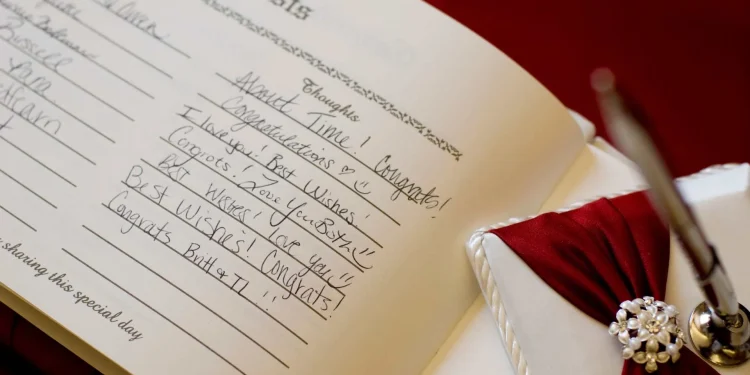 Thoughts
About Time! Congrats!
Congratulations ♡ ☺
I love you! Best Wishes!
Congrats! Love You Both ☺
Best Wishes! love you ☺
Best Wishes! Congrats!
Congrats Britt & TJ !!
sharing this special day